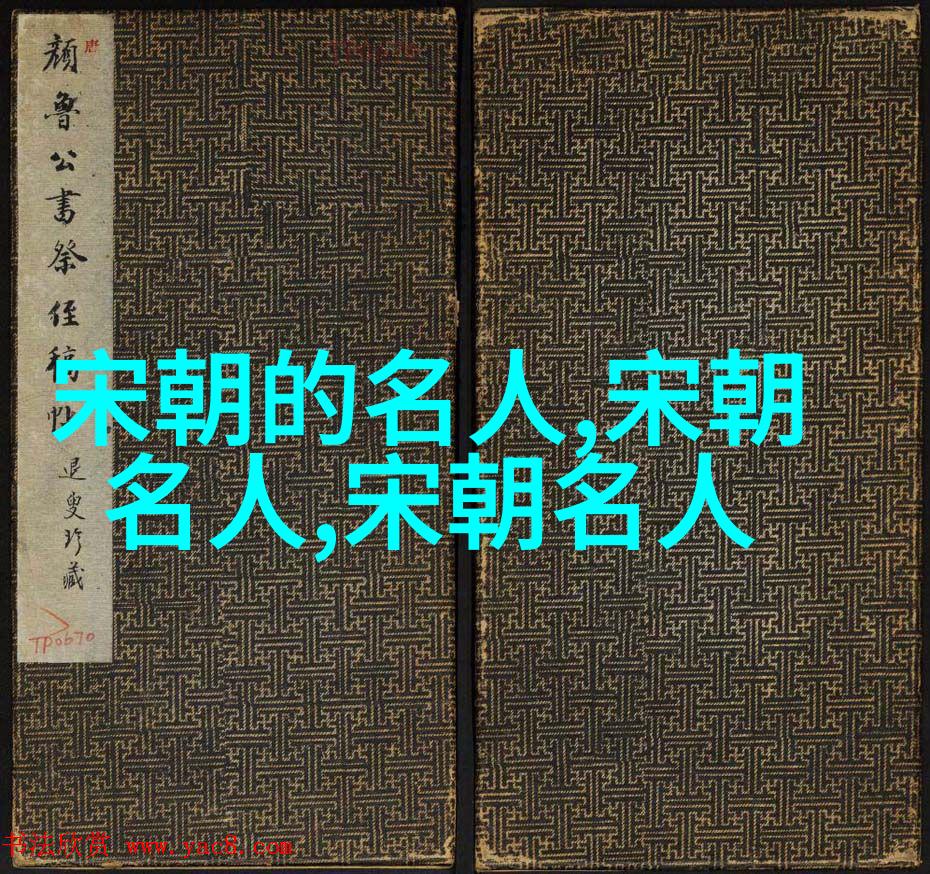 唐
颜鲁公书祭侄稿帖
退叟珍藏
TP0670
宋朝的名人,宋朝
名人,宋朝名人
书法欣赏 www.yac8.com